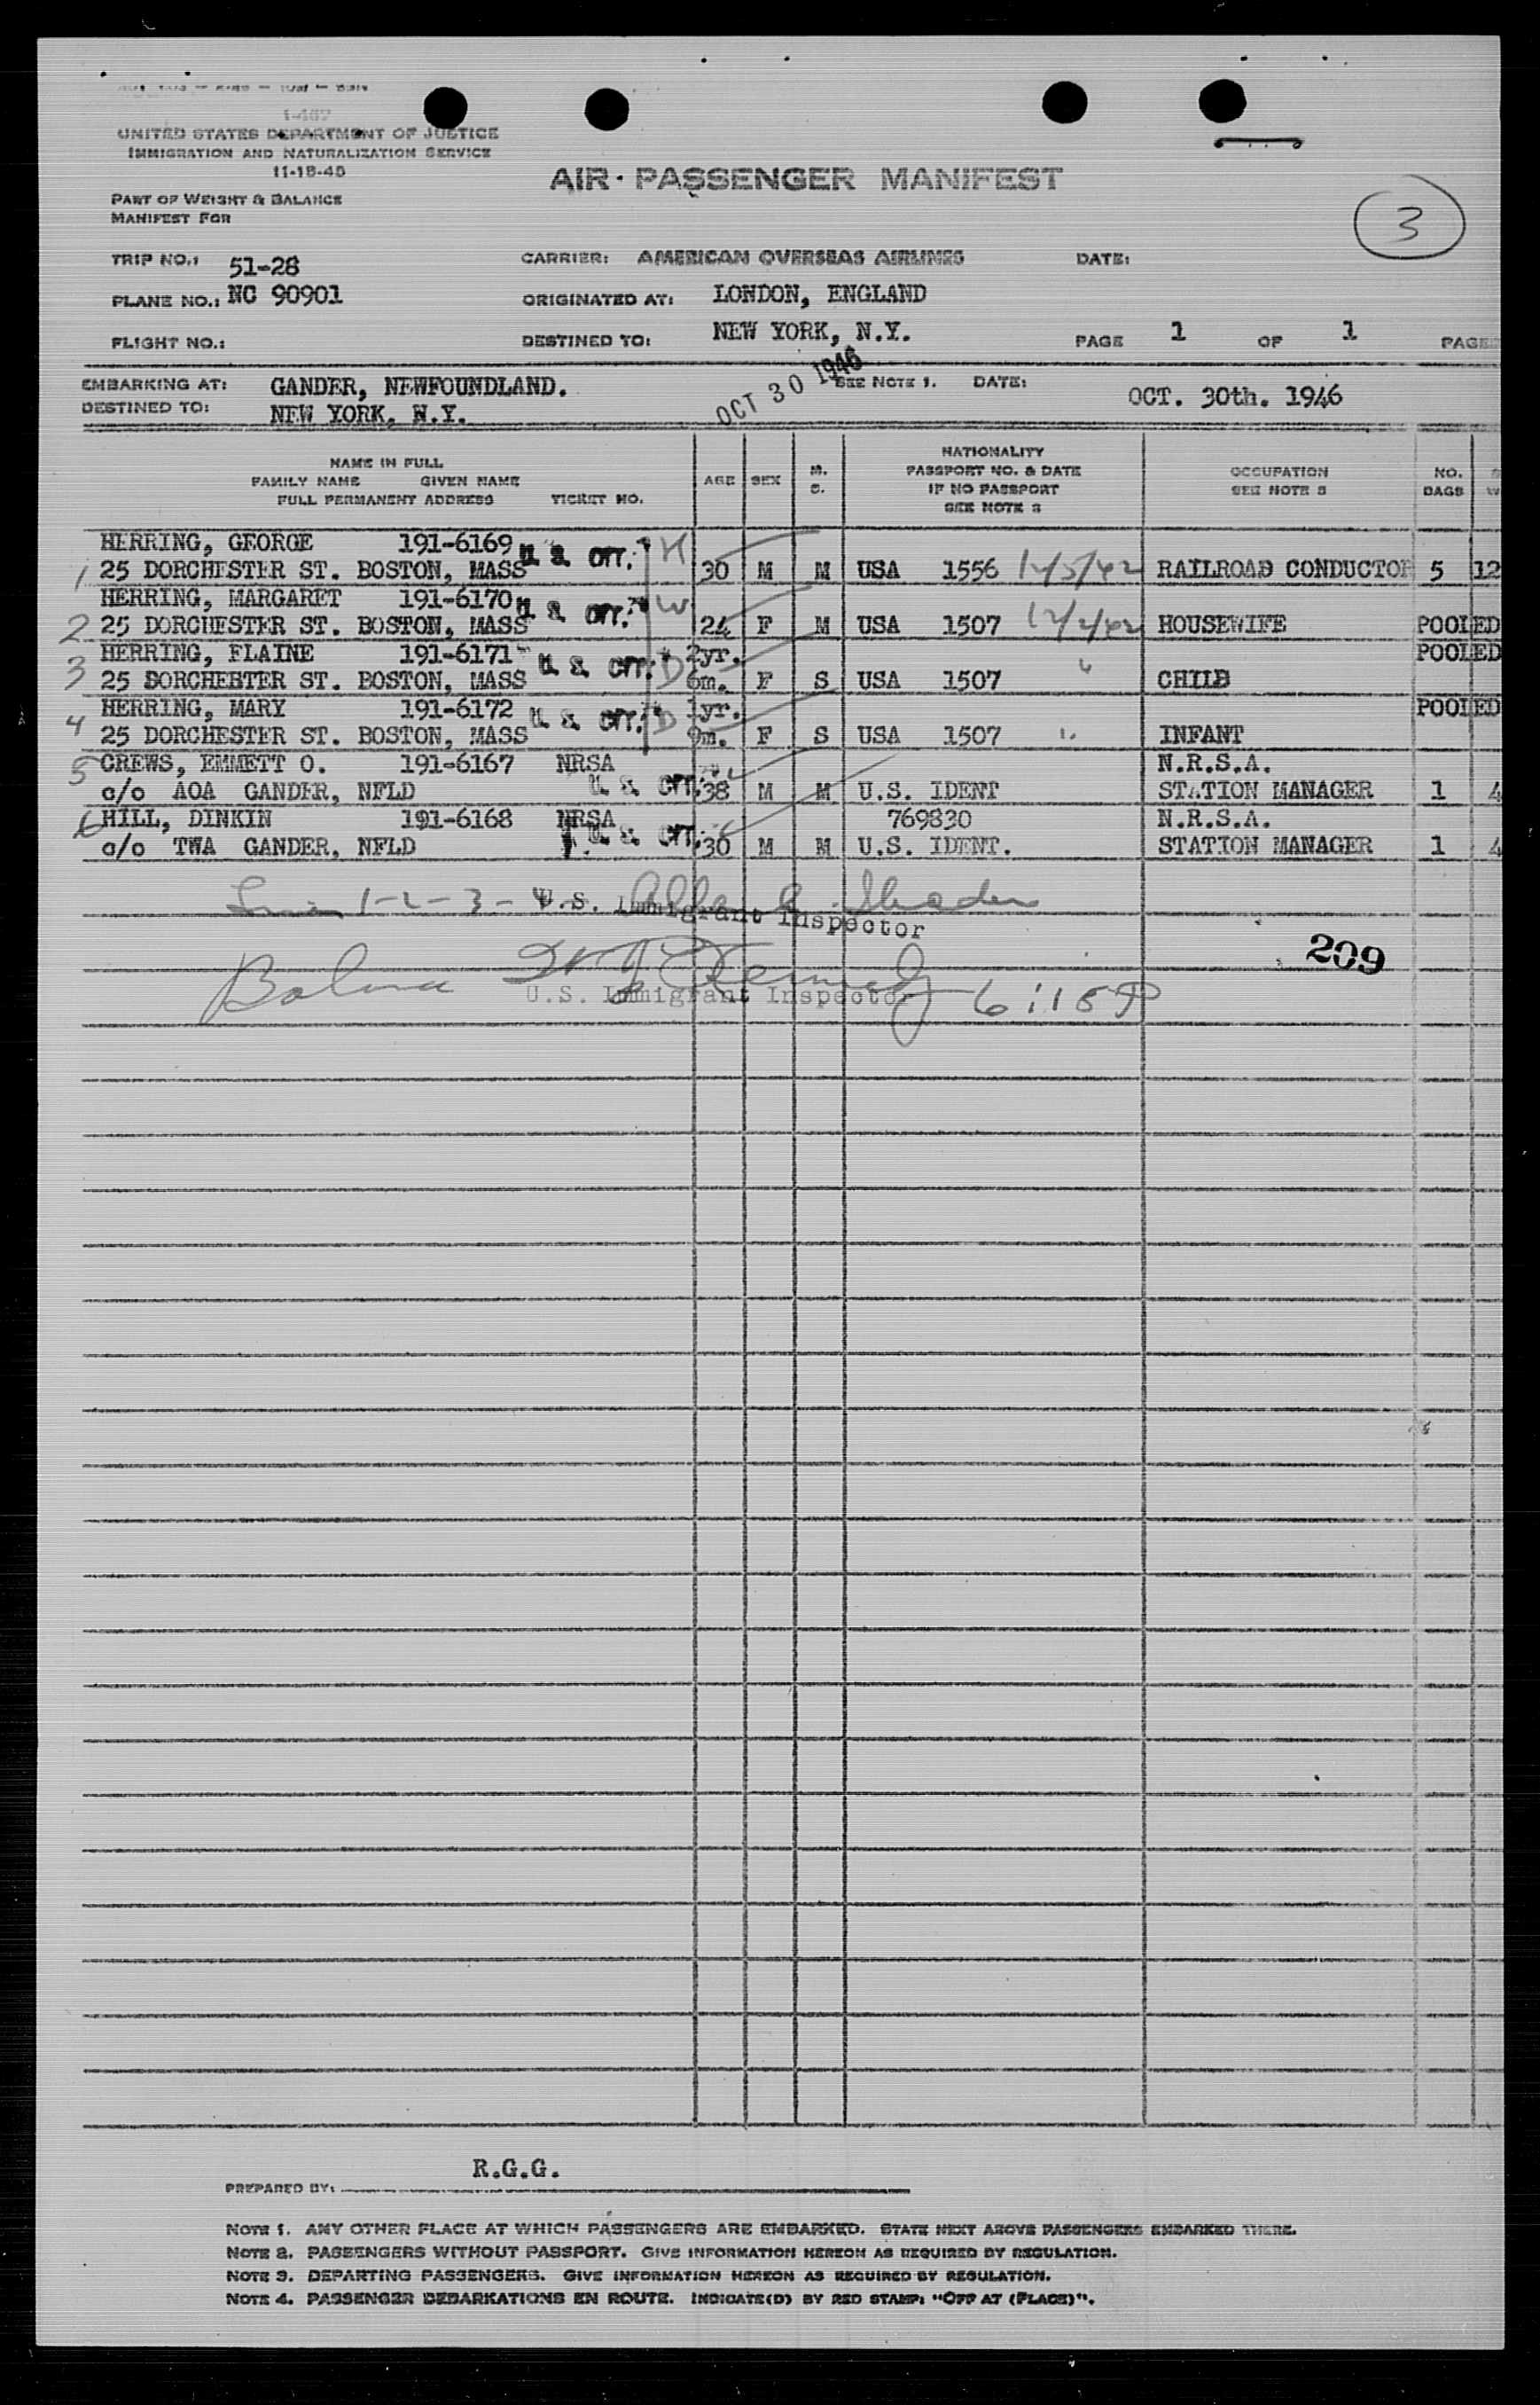 1-467
UNITED STATES DEPARTMENT OF JUSTICE
IMMIGRATION AND NATURALIZATION SERVICE
11-18-45
AIR-PASSENGER MANIFEST
PART OF WEIGHT & BALANCE
MANIFEST FOR
3
TRIP NO.: 51-28 CARRIER: AMERICAN OVERSEAS AIRLINES DATE:
PLANE NO.: NC 90901 ORIGINATED AT: LONDON, ENGLAND
FLIGHT NO.: DESTINED TO: NEW YORK, N.Y. PAGE 1 OF 1 PAGE
EMBARKING AT: GANDER, NEWFOUNDLAND. OCT 30 1946 SEE NOTE 1. DATE: OCT. 30th. 1946
DESTINED TO: NEW YORK, N.Y.
NAME IN FULL
FAMILY NAME GIVEN NAME
FULL PERMANENT ADDRESS TICKET NO.
AGE SEX M. S.
NATIONALITY
PASSPORT NO. & DATE
IF NO PASSPORT
SEE NOTE 2
OCCUPATION
SEE NOTE 3
NO.
BAGS
HERRING, GEORGE 191-6169 U. S. CIT. H
1 25 DORCHESTER ST. BOSTON, MASS 30 M M USA 1556 12/5/42 RAILROAD CONDUCTOR 5 12
HERRING, MARGARET 191-6170 U. S. CIT. W
2 25 DORCHESTER ST. BOSTON, MASS 24 F M USA 1507 12/2/42 HOUSEWIFE POOLED
HERRING, ELAINE 191-6171 U. S. CIT. D 2yr. POOLED
3 25 DORCHESTER ST. BOSTON, MASS 6m. F S USA 1507 " CHILD
HERRING, MARY 191-6172 U. S. CIT. D 1yr. POOLED
4 25 DORCHESTER ST. BOSTON, MASS 9m. F S USA 1507 " INFANT
5 CREWS, EMMETT O. 191-6167 NRSA N.R.S.A.
c/o AOA GANDER, NFLD U. S. CIT. 38 M M U.S. IDENT STATION MANAGER 1 4
6 HILL, DINKIN 191-6168 NRSA 769830 N.R.S.A.
c/o TWA GANDER, NFLD U. S. CIT. 30 M M U.S. IDENT. STATION MANAGER 1 4
1-2-3-
U.S. Immigrant Inspector
209
U.S. Immigrant Inspector 6:15P
R.G.G.
PREPARED BY:
NOTE 1. ANY OTHER PLACE AT WHICH PASSENGERS ARE EMBARKED. STATE NEXT ABOVE PASSENGERS EMBARKED THERE.
NOTE 2. PASSENGERS WITHOUT PASSPORT. GIVE INFORMATION HEREON AS REQUIRED BY REGULATION.
NOTE 3. DEPARTING PASSENGERS. GIVE INFORMATION HEREON AS REQUIRED BY REGULATION.
NOTE 4. PASSENGER DEBARKATIONS EN ROUTE. INDICATE(D) BY RED STAMP: "OFF AT (PLACE)".